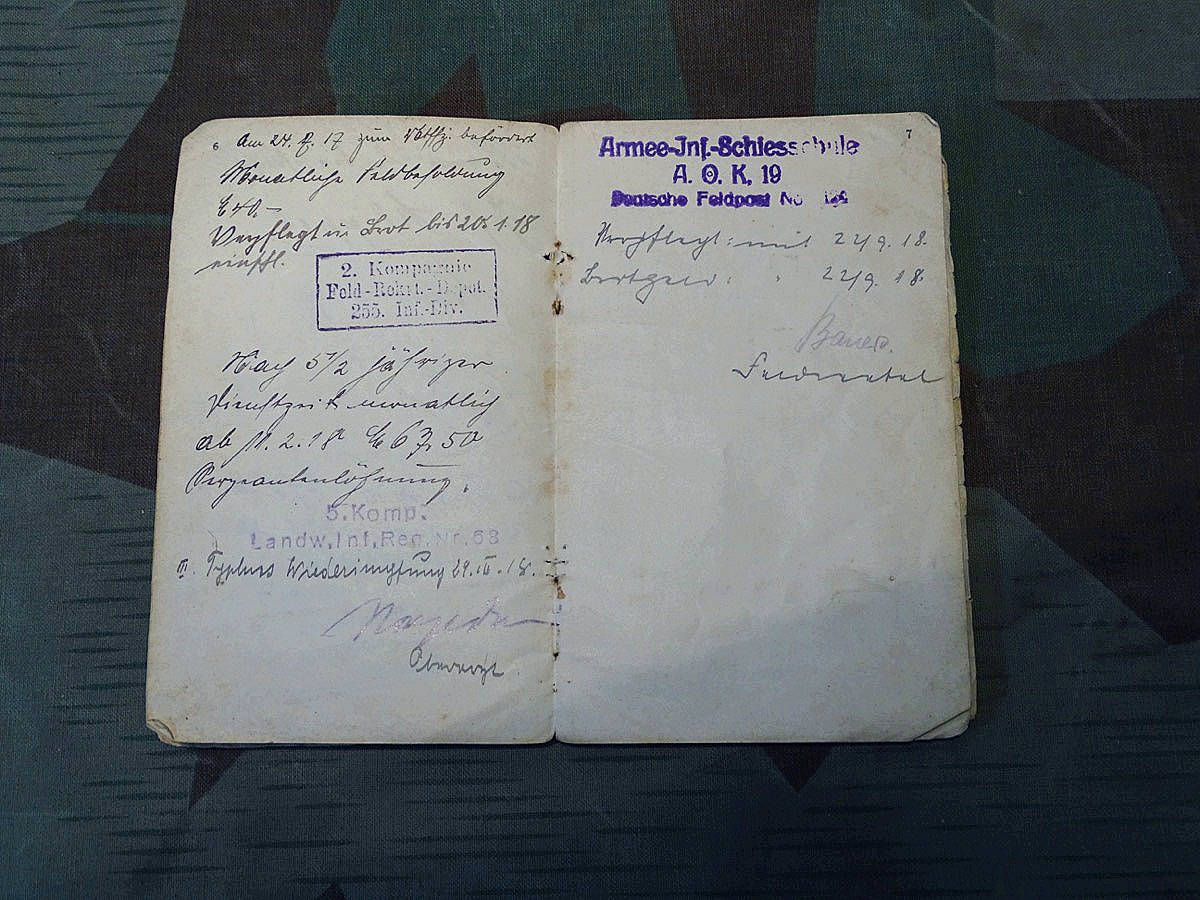 6
Am 24. 17 zum befördert
Monatliche Feldbesoldung
M 40.–
Verpflegt u. Brot bis 20. 1. 18
einschl.
2. Kompagnie
Feld-Rekrt.-Depot.
255. Inf.-Div.
Nach 5 1/2 jähriger
Dienstzeit monatlich
ab 11. 2. 18 M 63,50
Sergeantenlöhnung.
5. Komp.
Landw. Inf. Reg. Nr. 68
Typhus Wiederimpfung 29. 18.
Oberarzt
7
Armee-Inf.-Schiesschule
A. O. K. 19
Deutsche Feldpost No
Verpflegt: mit 22/9. 18.
Brotgeld: " 22/9. 18.
Bauer.
Feldwebel